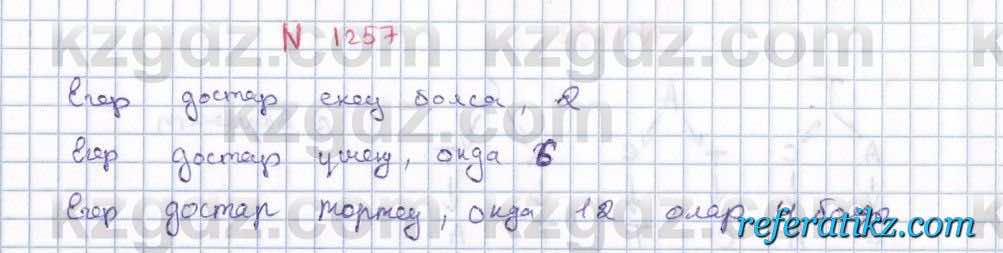 N 1257
Егер достар екеу болса, 2
Егер достар үшеу, онда 6
Егер достар төртеу, онда 12 олар
kzgdz.com
kzgdz.com
referatikz.com